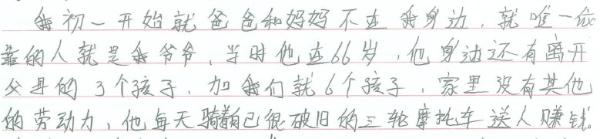 我初一开始就爸爸和妈妈不在我身边，就唯一依
靠的人就是我爷爷，当时他这66岁，他身边还有离开
父母的3个孩子，加我们就6个孩子，家里没有其他
的劳动力，他每天骑着已很破旧的三轮摩托车送人赚钱。